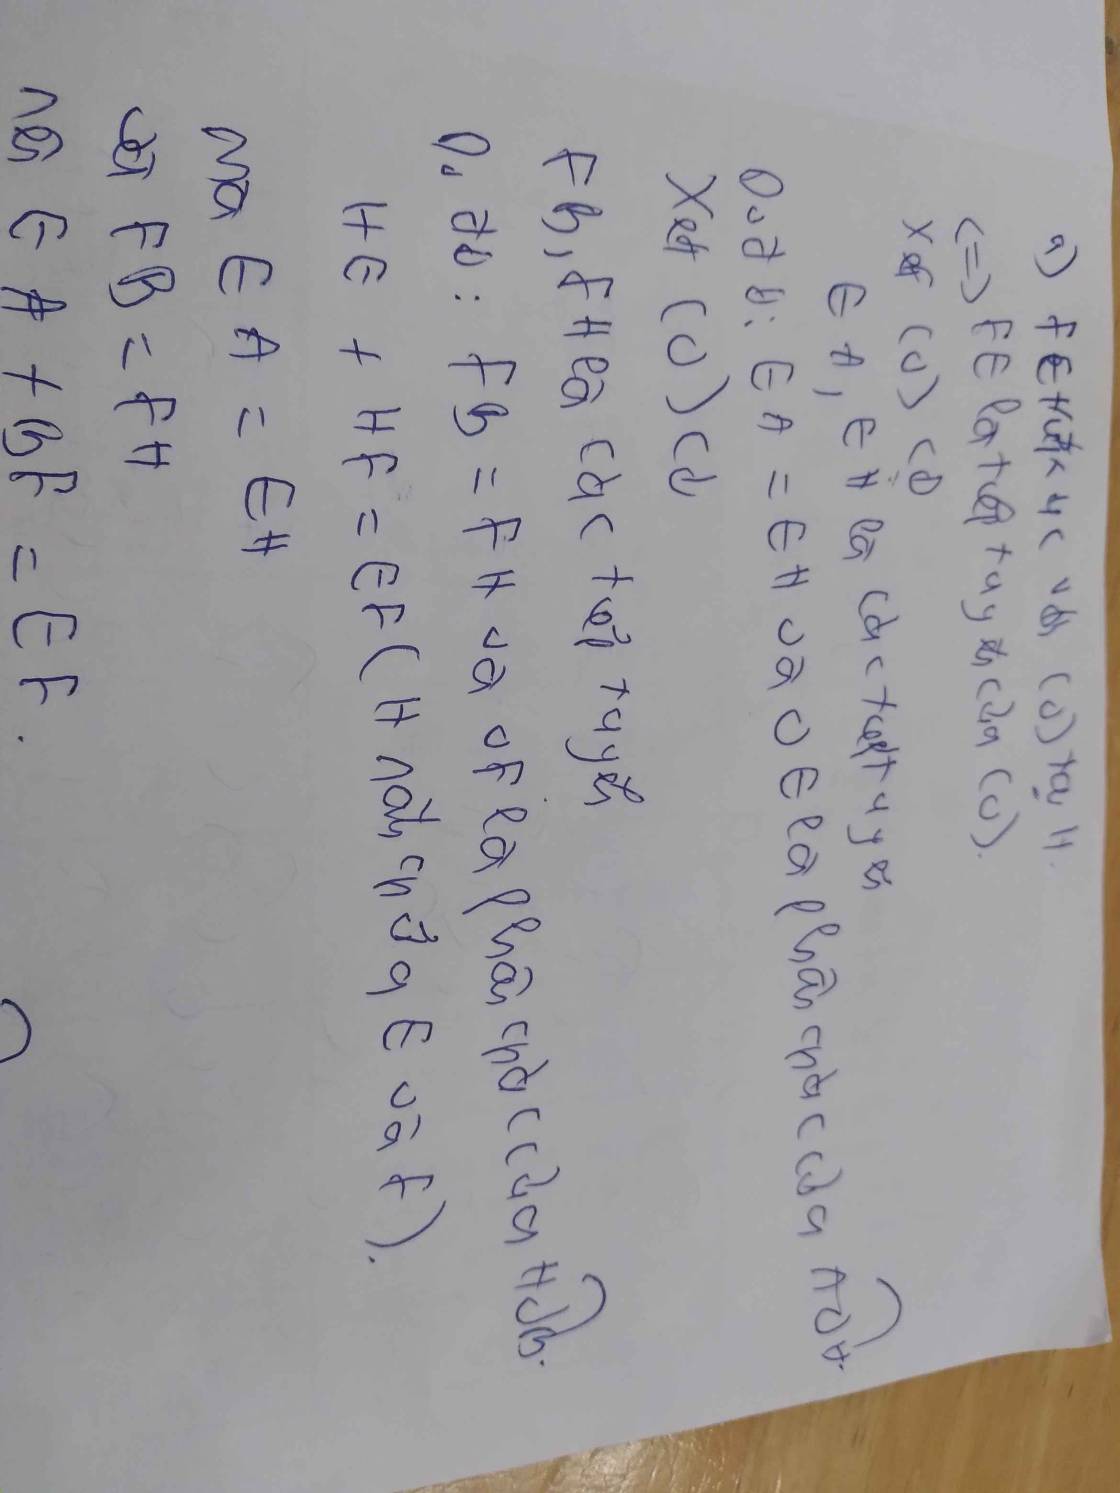 a) FE tiếp xúc với (O) tại H.
<=> FE là tiếp tuyến của (O).
Xét (O) có
EA, EH là các tiếp tuyến
Do đó: EA = EH và OE là phân giác của AOH.
Xét (O) có
FB, FH là các tiếp tuyến
Do đó: FB = FH và OF là phân giác của HOB.
HE + HF = EF (H nằm giữa E và F).
mà EA = EH
và FB = FH
nên EA + BF = EF.